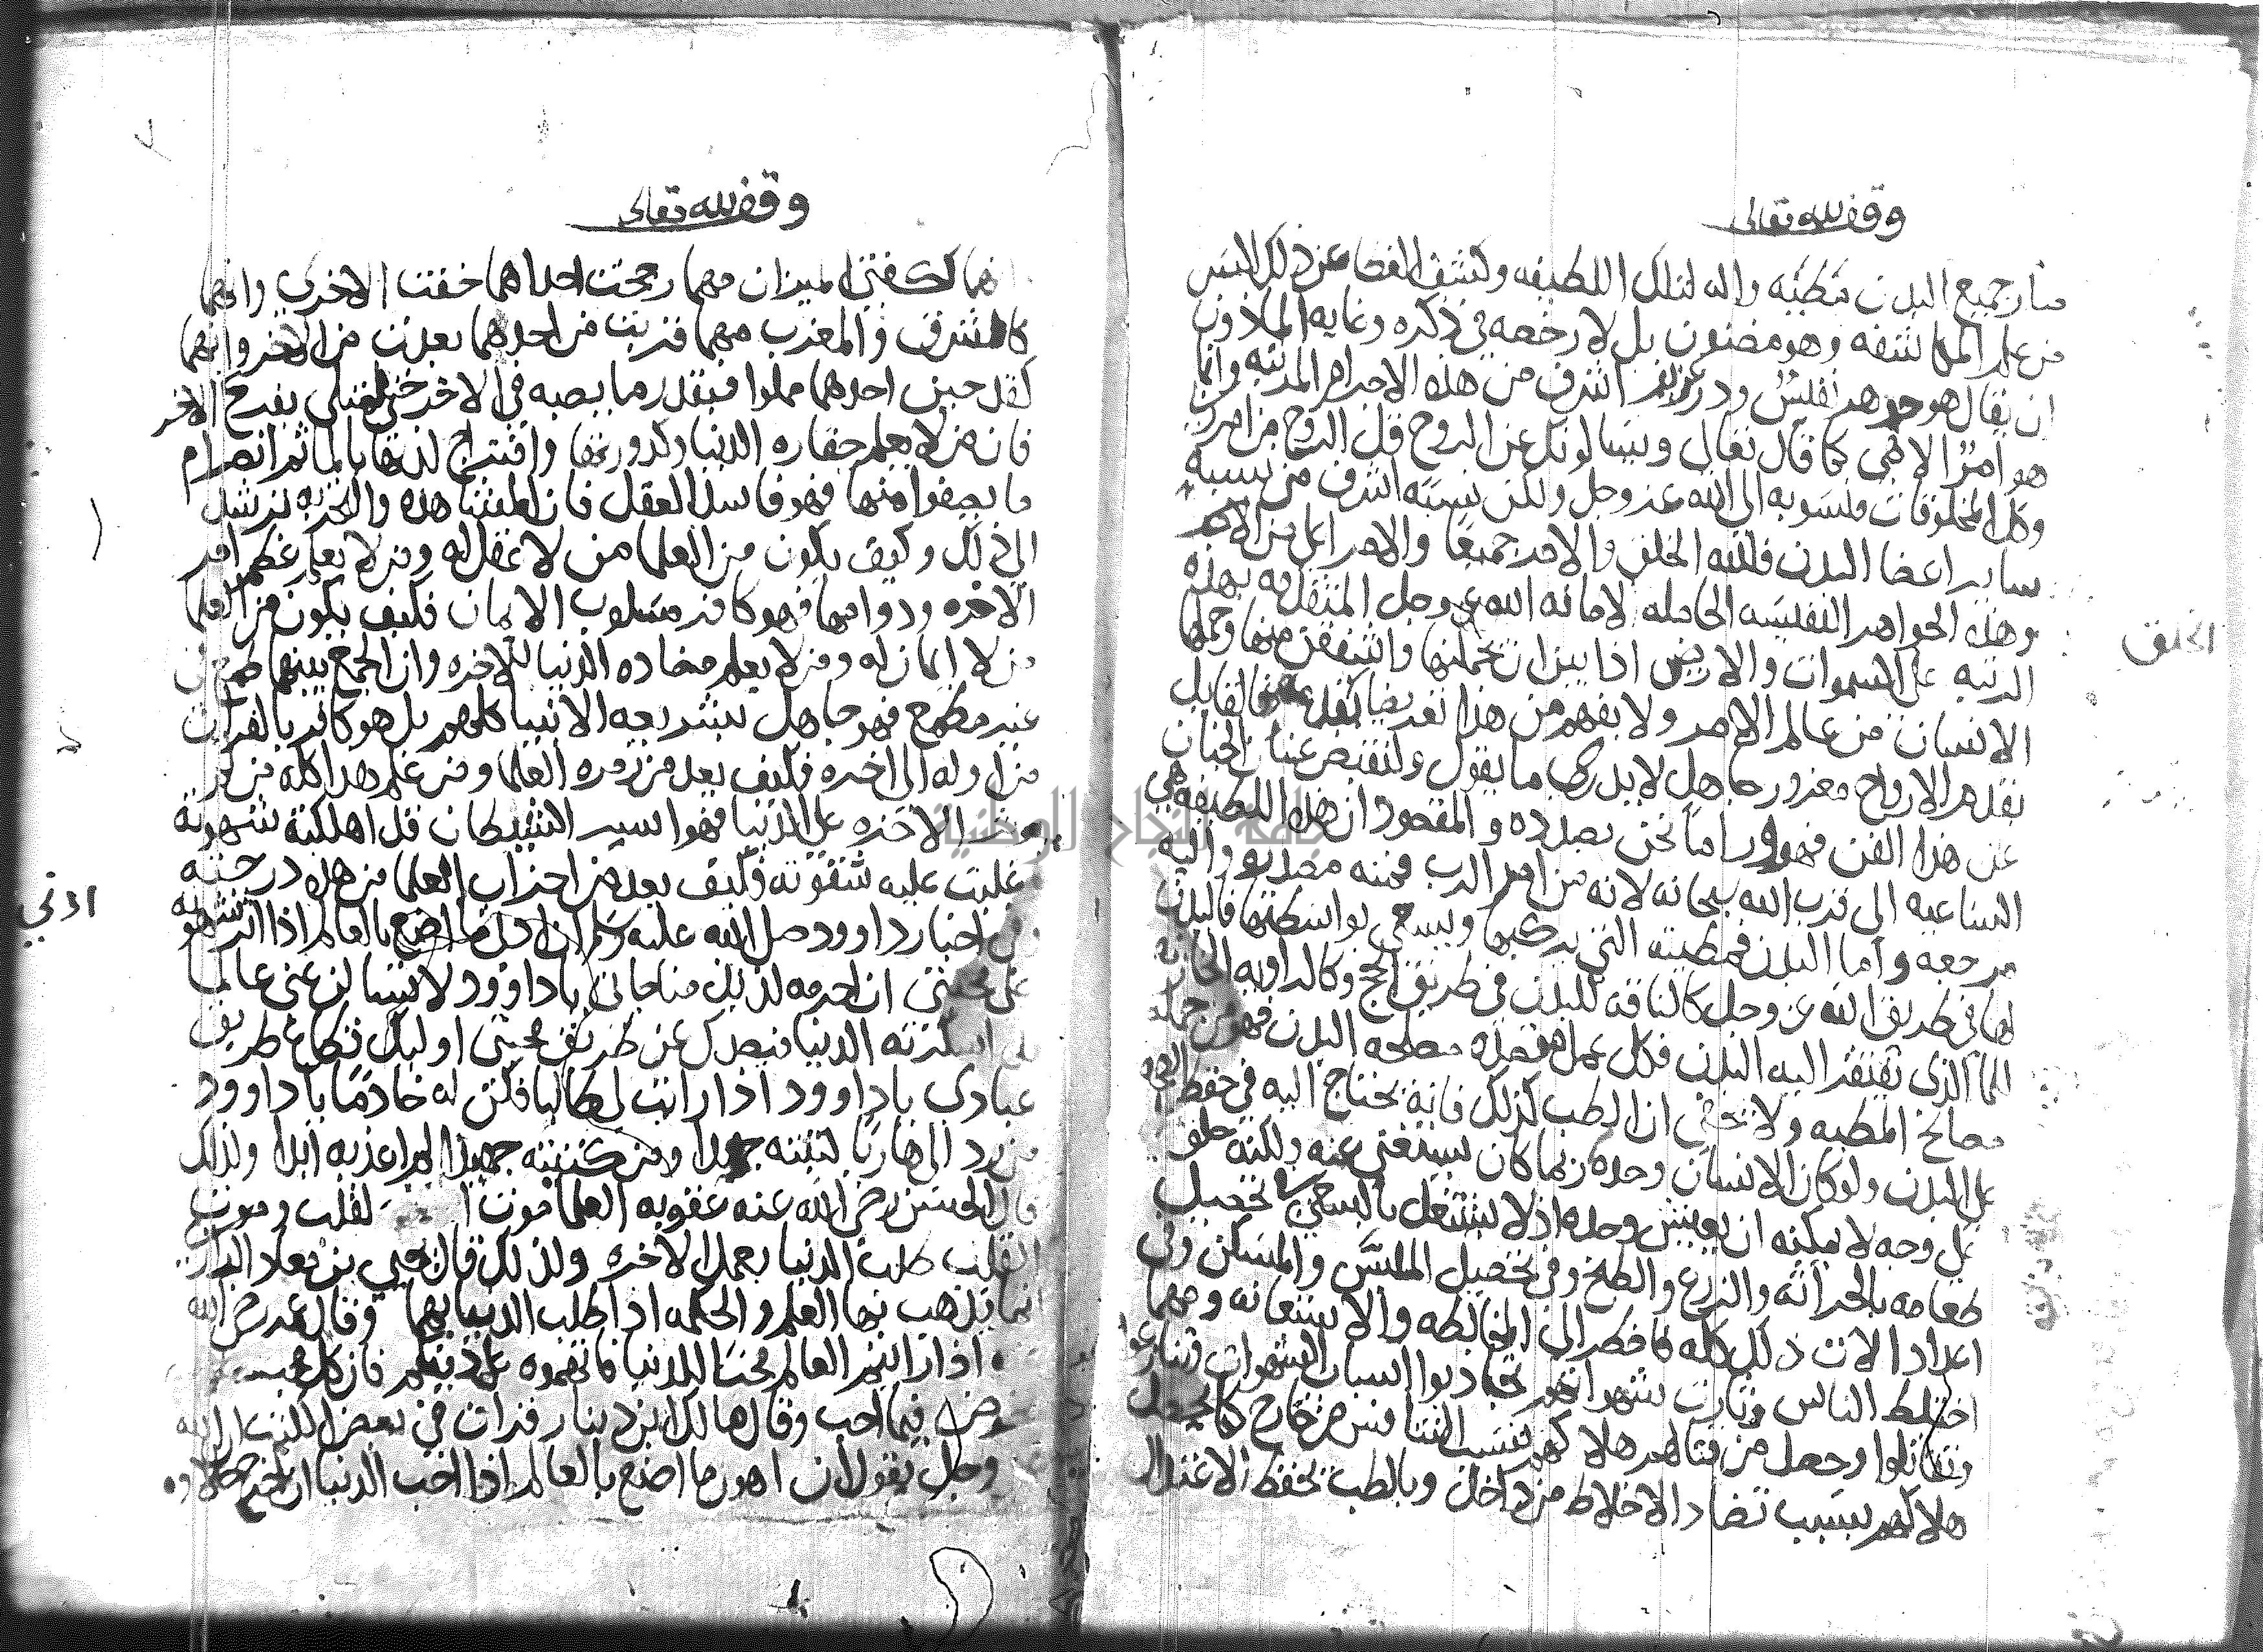 وقف لله تعالى
صار جميع البدن مطيه واله لتلك اللطيفه وكشف الغطا عن ذلك السر
من علم المكاشفه وهو مضنون بل لا رخصه في ذكره وغايه الماذون
ان يقال هو جوهر نفيس ودر عزيز اشرف من هذه الاجرام المرئيه وانما
هو امر الاهي كما قال تعالى ويسالونك عن الروح قل الروح من امر ربي
وكل المخلوقات منسوبه الى الله عز وجل ولكن نسبته اشرف من نسبه
ساير اعضا البدن فلله الخلق والامر جميعا والامر اعلى من الخلق
وهذه الجواهر النفيسه الحامله لامانه الله عز وجل المتقدمه بهذه
الرتبه على السموات والارض اذا بين ان يحملنها واشفقن منها وحملها
الانسان من عالم الامر ولا يفهم من هذا تعريضا بقدمه فالقايل
بقدم الارواح مغرور جاهل لا يدري ما يقول ولنقبض عنان البيان
عن هذا الفن فهو ورا ما نحن بصدده والمقصود ان هذه اللطيفه هي
الساعيه الى قرب الله سبحانه لانه من امر الرب فمنه مصدره واليه
مرجعه واما البدن فمطيته التي يركبها ويسعى بواسطتها فالبدن
لها في طريق الله عز وجل كالناقه للبدن في طريق الحج وكالراويه الخازنه
للما الذي يفتقر اليه البدن فكل عمل مقصده مصلحه البدن فهو من جمله
مصالح المطيه ولا يخفى ان الطب كذلك فانه يحتاج اليه في حفظ الصحه
على البدن ولو كان الانسان وحده ربما كان يستغني عنه ولكنه خلق
على وجه لا يمكنه ان يعيش وحده اذ لا يستقل بالسعي في تحصيل
طعامه بالحراثه والزرع والطبخ وفي تحصيل الملبس والمسكن وفي
اعداد الات ذلك كله فاضطر الى المخالطه والاستعانه ومهما
اختلط الناس وثارت شهواتهم تجاذبوا اسباب الشهوات وتنازعوا
وتقاتلوا وحصل من قتالهم هلاكهم بسبب التنافس من خارج كما يحصل
هلاكهم بسبب تضاد الاخلاط من داخل وبالطب يحفظ الاعتدال
الخلق
وقف لله تعالى
انهما ككفتي الميزان مهما رجحت احداهما خفت الاخرى وانهما
كالمشرق والمغرب مهما قربت من احدهما بعدت من الاخر وانهما
كقدحين احدهما مملوا فبقدر ما يصبه في الاخر حتى يمتلى يفرغ الاخر
فان من لا يعلم حقاره الدنيا وكدورتها وامتزاج لذتها بالمها ثم انصرام
ما يصفوا منها فهو فاسد العقل فان المشاهده والتجربه ترشد
الى ذلك وكيف يكون من العلما من لا عقل له ومن لا يعلم عظم امر
الاخره ودوامها فهو كافر مسلوب الايمان فكيف يكون من العلما
من لا ايمان له ومن لا يعلم مضاده الدنيا للاخره وان الجمع بينهما طمع في
غير مطمع فهو جاهل بشريعه الانبيا كلهم بل هو كافر بالقران
من اوله الى اخره فكيف يعد من زمره العلما ومن علم هذا كله ثم لم
يوثر الاخره على الدنيا فهو اسير الشيطان قد اهلكته شهوته
وغلبت عليه شقوته فكيف يعد من احزاب العلما من هذه درجته
وفي اخبار داوود صلى الله عليه وسلم ان ادنى ما اصنع بالعالم اذا اثر شهوته
على محبتي ان احرمه لذيذ مناجاتي يا داوود لا تسالن عني عالما
قد اسكرته الدنيا فيصدك عن طريق محبتي اوليك قطاع طريق
عبادي يا داوود اذا رايت لي طالبا فكن له خادما يا داوود
من رد الي هاربا كتبته جهبذا ومن كتبته جهبذا لم اعذبه ابدا ولذلك
قال الحسن رضي الله عنه عقوبه العلما موت القلب وموت
القلب طلب الدنيا بعمل الاخره ولذلك قال يحيى بن معاذ الرازي
انما يذهب بها العلم والحكمه اذا طلب الدنيا بهما وقال عمر رضي الله
اذا رايتم العالم محبا للدنيا فاتهموه على دينكم فان كل محب
يخوض فيما احب وقال مالك بن دينار قرات في بعض الكتب ان الله
عز وجل يقول ان اهون ما اصنع بالعالم اذا احب الدنيا ان اخرج حلاوه
ادنى